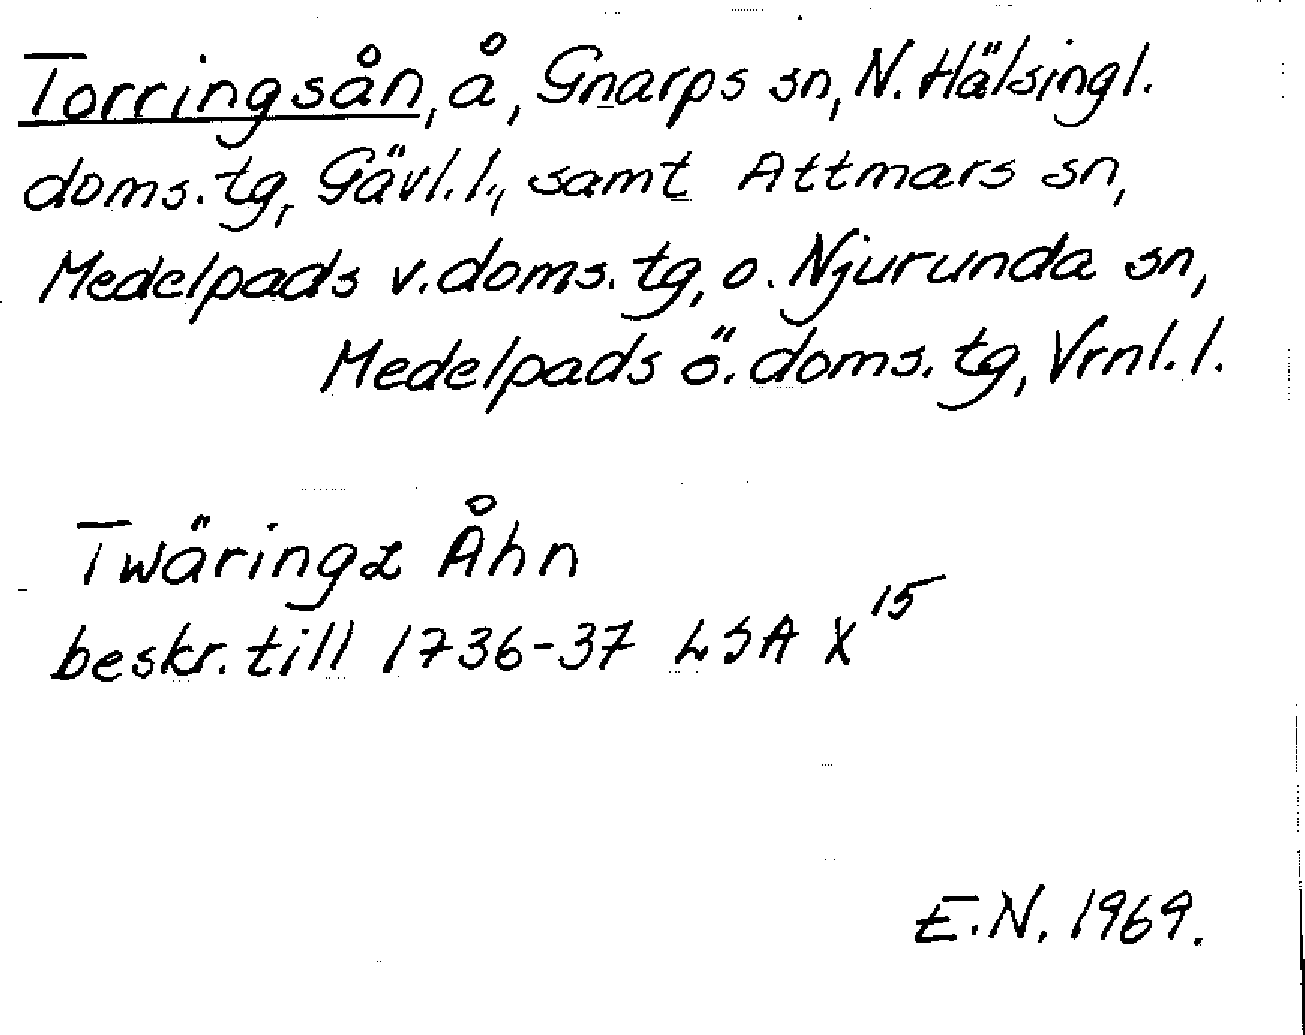 Torringsån, å, Gnarps sn, N. Hälsingl.
doms. tg, Gävl. l., samt Attmars sn,
Medelpads v. doms. tg, o. Njurunda sn,
Medelpads ö. doms. tg, Vrnl. l.
Twäringz Åhn
beskr. till 1736-37 LSA X 15
E.N. 1969.